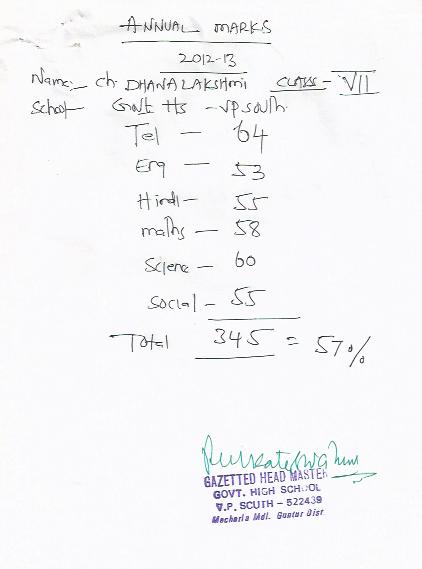 ANNUAL MARKS
2012-13
Name:- Ch. DHANALAKSHMI CLASS - VII
School Govt HS - VP South.
Tel - 64
Eng - 53
Hindi - 55
maths - 58
Science - 60
Social - 55
Total 345 = 57%
GAZETTED HEAD MASTER
GOVT. HIGH SCHOOL
V.P. SOUTH - 522439
Macharla Mdl. Guntur Dist